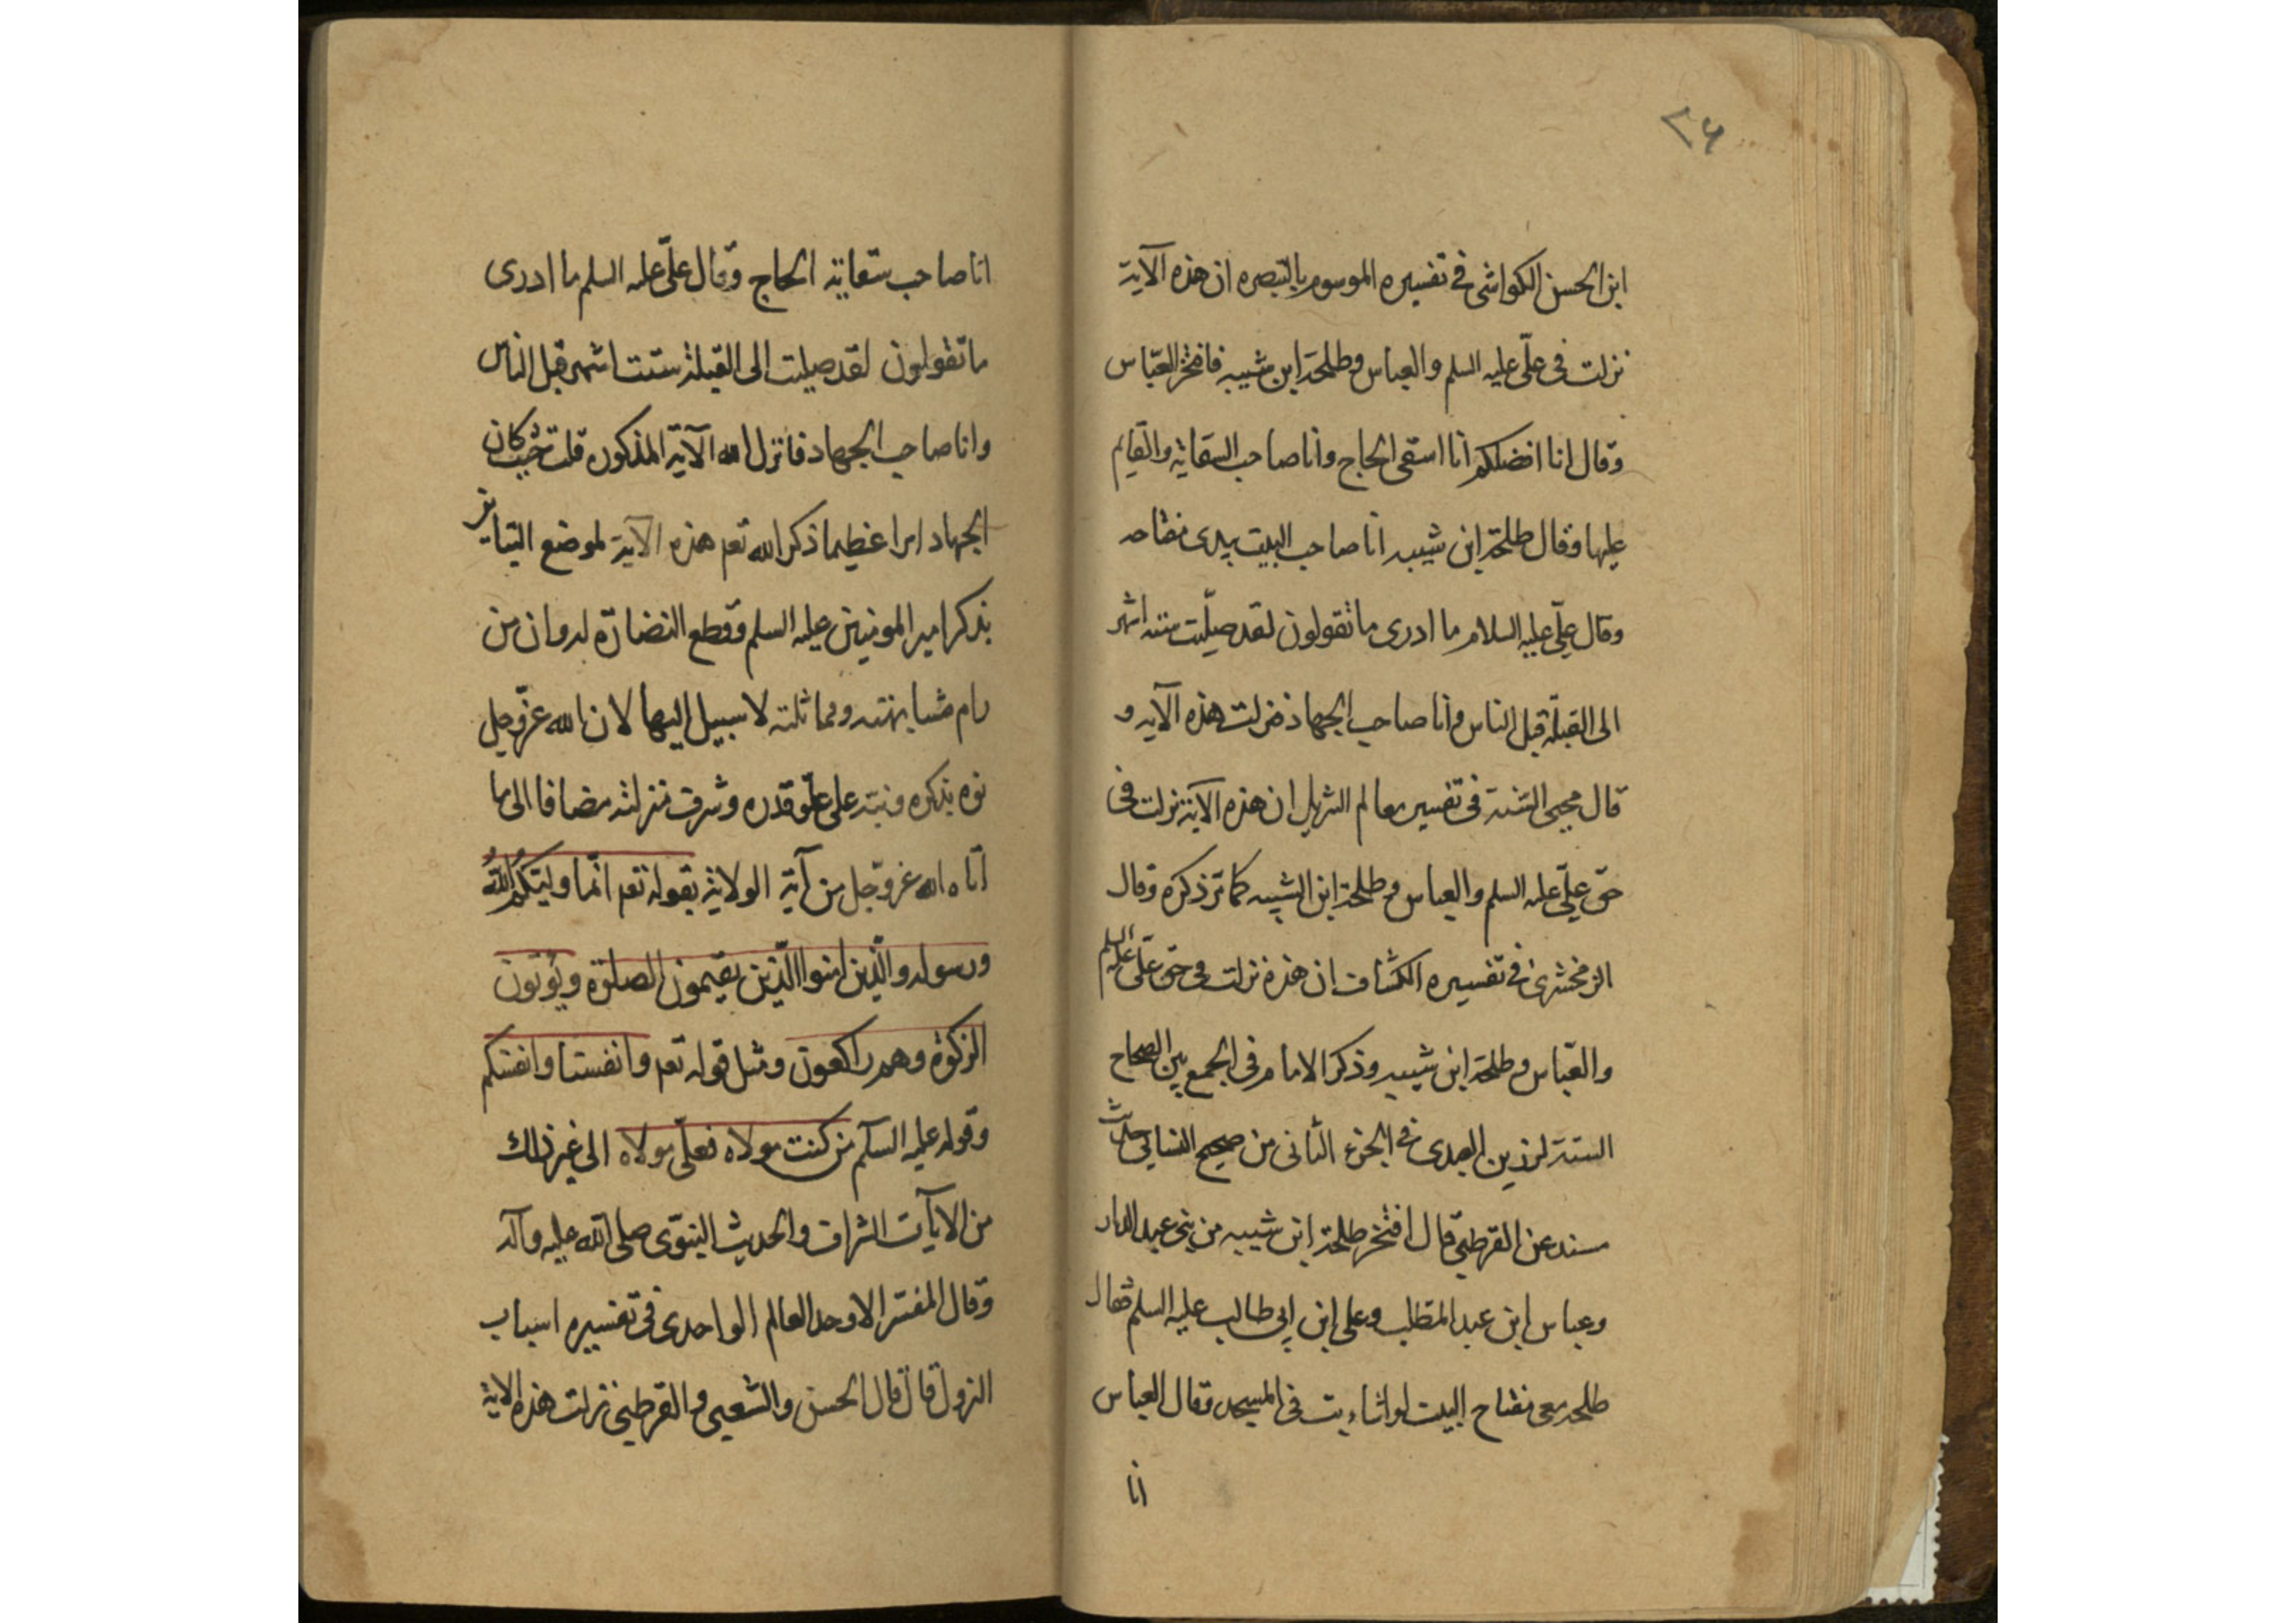 ٢٦
ابن الحسن الكواشى فى تفسيره الموسوم بالتبصره ان هذه الآية
نزلت فى علّى عليه السلم والعباس وطلحة ابن شيبه فافتخر العبّاس
وقال انا افضلكم انا اسقى الحاج وانا صاحب السقاية والقايم
عليها وقال طلحة ابن شيبه انا صاحب البيت بيدى مفتاحه
وقال علّى عليه السلام ما ادرى ما تقولون لقد صلّيت ستة اشهر
الى القبلة قبل الناس وانا صاحب الجهاد فنزلت هذه الآيه و
قال محيى السنة فى تفسير معالم التنزيل ان هذه الآية نزلت فى
حق علّى عليه السلم والعباس وطلحة ابن الشيبه كما مرّ ذكره وقال
الزمخشرى فى تفسيره الكشاف ان هذه نزلت فى حق علّى عليه السلم
والعبّاس وطلحة ابن شيبه وذكر الامام فى الجمع بين الصحاح
الستة لرزين العبدى فى الجزء الثانى من صحيح النسائى حديث
مسند عن القرطبى قال افتخر طلحة ابن شيبه من بنى عبد الدار
وعباس ابن عبد المطلب وعلى ابن ابى طالب عليه السلم فقال
طلحه معى مفتاح البيت لو اشاء بت فى المسجد وقال العباس
انا
انا صاحب سقاية الحاج وقال علّى عليه السلم ما ادرى
ما تقولون لقد صليت الى القبلة ستت اشهر قبل الناس
وانا صاحب الجهاد فانزل الله الآية المذكوره قلت حيث كان
الجهاد امرا عظيما ذكر الله تعم هذه الآية لموضع
بذكر امير المومنين عليه السلم وقطع له وان من
رام مشابهته ومماثلته لا سبيل اليها لان الله عزّ وجل
نوه بذكره ونبّه على علّو قدره وشرف منزلته مضافا الى ما
اتاه الله عز وجل من آية الولاية بقوله تعم انّما وليّكم اللهُ
ورسوله والّذين امنوا الّذين يقيمون الصلوٰة ويؤتون
الزكوٰة وهم راكعون ومثل قوله تعم وانفسنا وانفسكم
وقوله عليه السلم من كنت مولاه فعلّى مولاه الى غير ذلك
من الايآت الشراف والحديث النبوّى صلى الله عليه وآله
وقال المفسر الاوحد العالم الواحدى فى تفسيره اسباب
النزول قال قال الحسن والشعبى والقرطبى نزلت هذه الاية